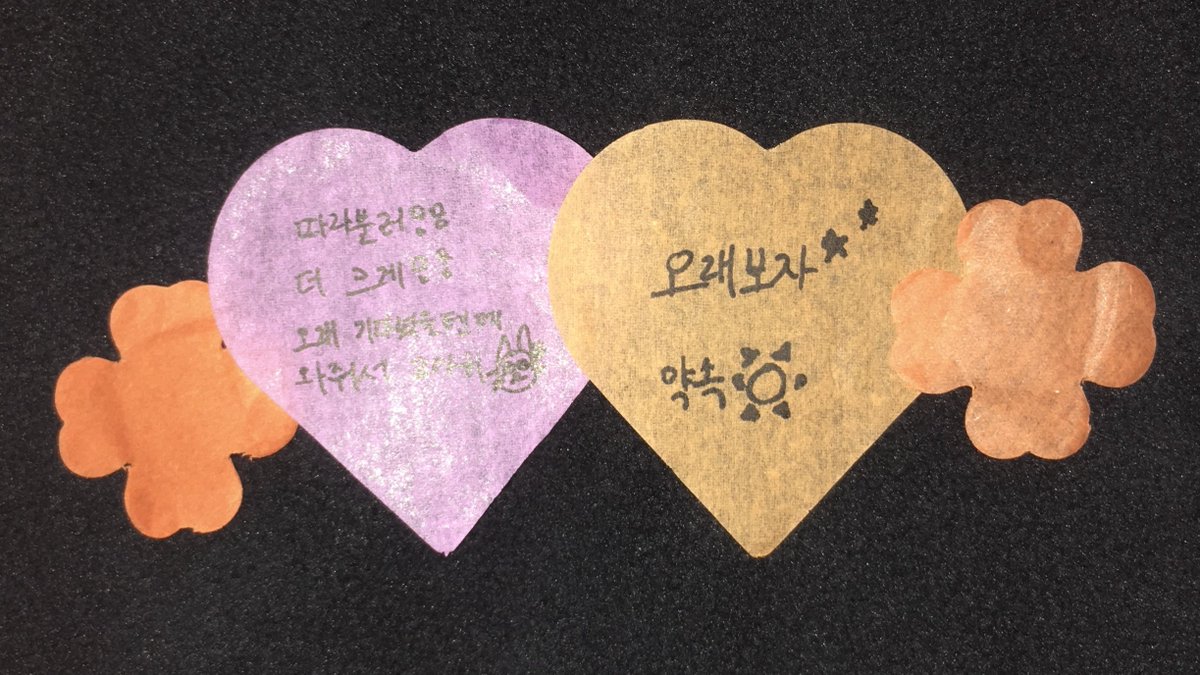 따라불러응응
더 크게응응
오래 기다렸을텐데
와줘서
오래보자
약속